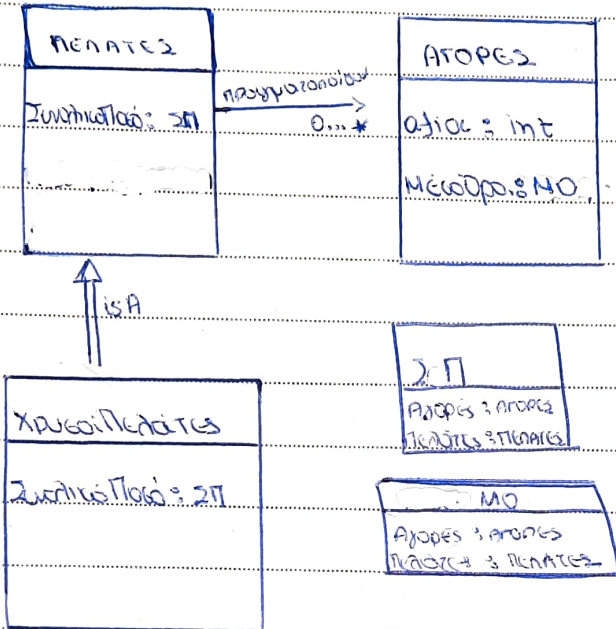 ΠΕΛΑΤΕΣ
ΣυνολικόΠοσό: ΣΠ
πραγματοποιούν
0...*
ΑΓΟΡΕΣ
αξία: int
ΜέσοΌρο: ΜΟ
isA
ΧρυσοίΠελάτες
ΣυνολικόΠοσό: ΣΠ
ΣΠ
Αγορές: ΑΓΟΡΕΣ
Πελάτες: ΠΕΛΑΤΕΣ
ΜΟ
Αγορές: ΑΓΟΡΕΣ
Πελάτες: ΠΕΛΑΤΕΣ